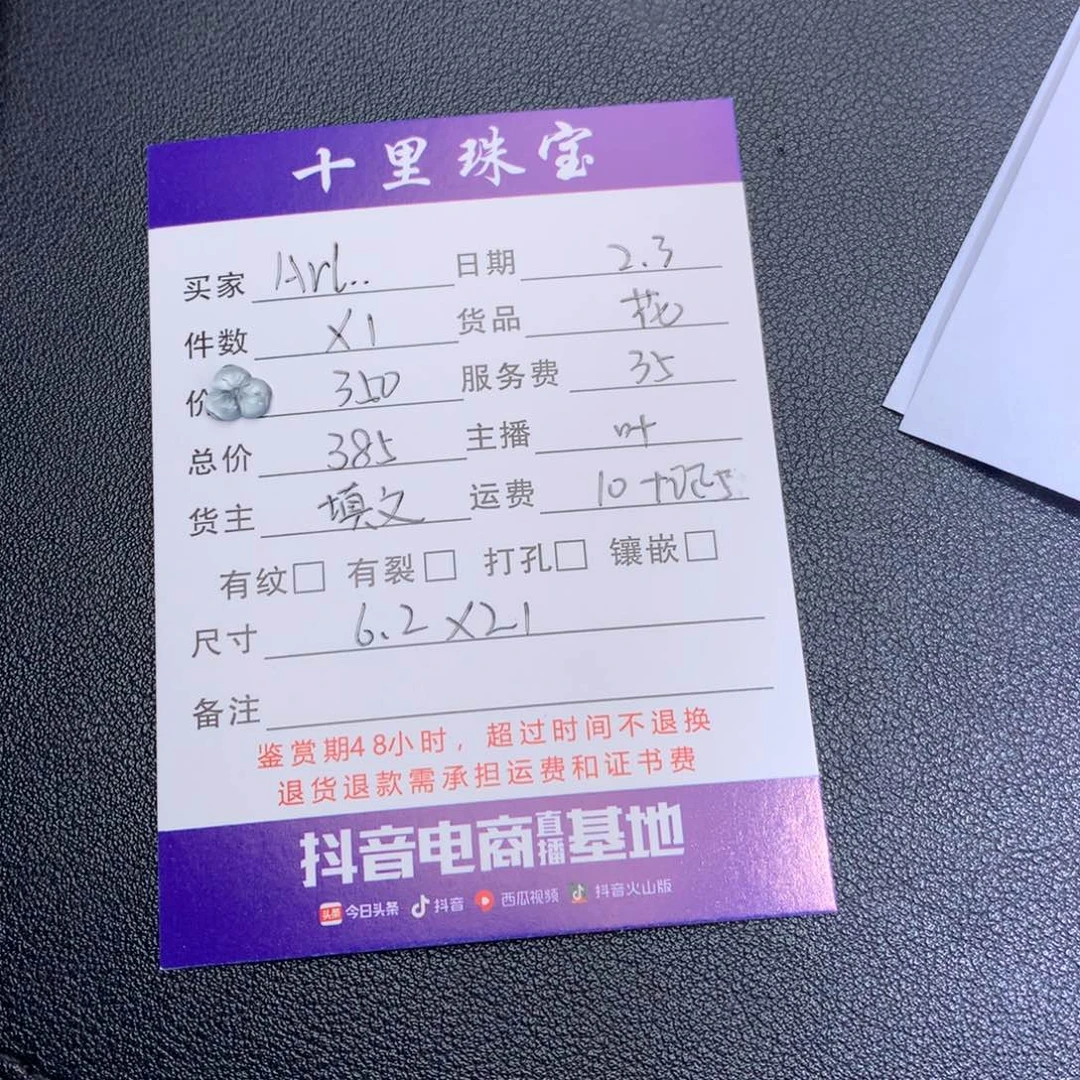 十里珠宝
买家 Arl.. 日期 2.3
件数 X1 货品 花
价 350 服务费 35
总价 385 主播 叶
货主 填文 运费 10+
有纹□ 有裂□ 打孔□ 镶嵌□
尺寸 6.2X21
备注
鉴赏期48小时，超过时间不退换
退货退款需承担运费和证书费
抖音电商直播基地
头条 今日头条 抖音 西瓜视频 抖音火山版